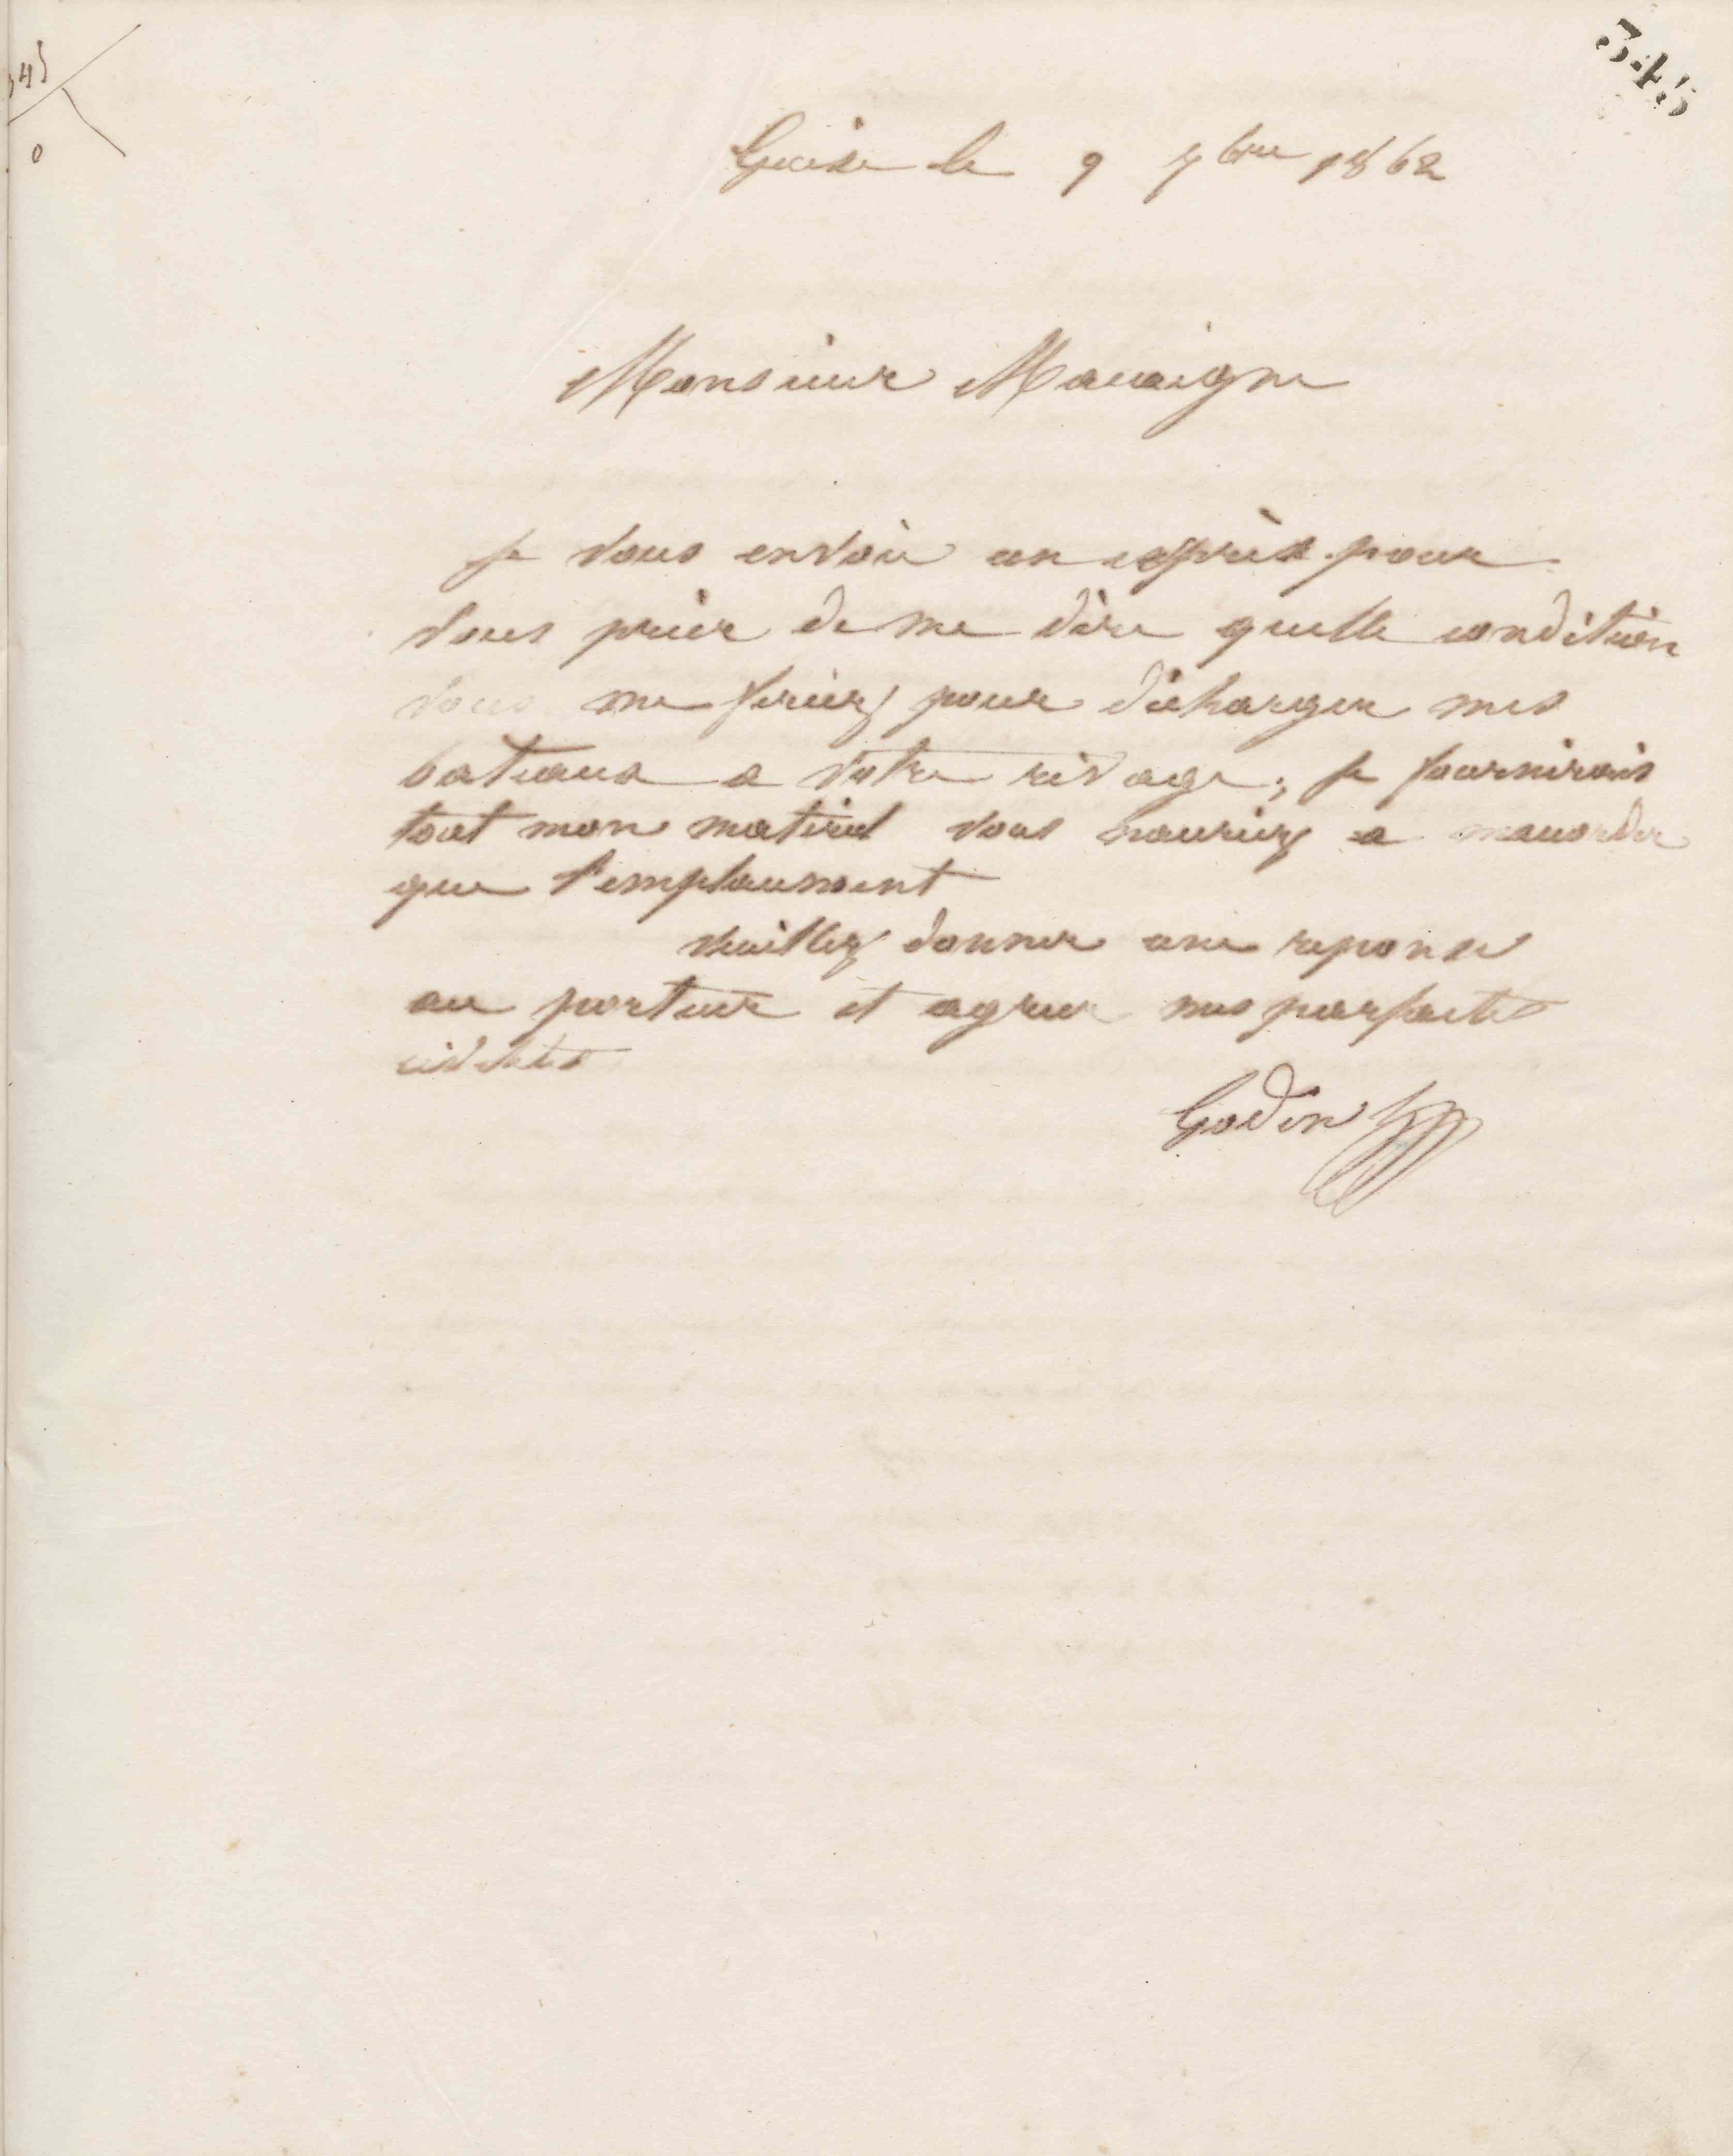 345
345
0
Guise le 9 7bre 1862
Monsieur Macaigne
Je vous envoie un exprès pour
vous prier de me dire quelle condition
vous me feriez pour décharger mes
bateaux a votre rivage; je fournirais
tout mon materiel vous nauriez a maccorder
que l'emplacement
veuillez donner une reponse
au porteur et agreer mes parfaites
civilités
Godin